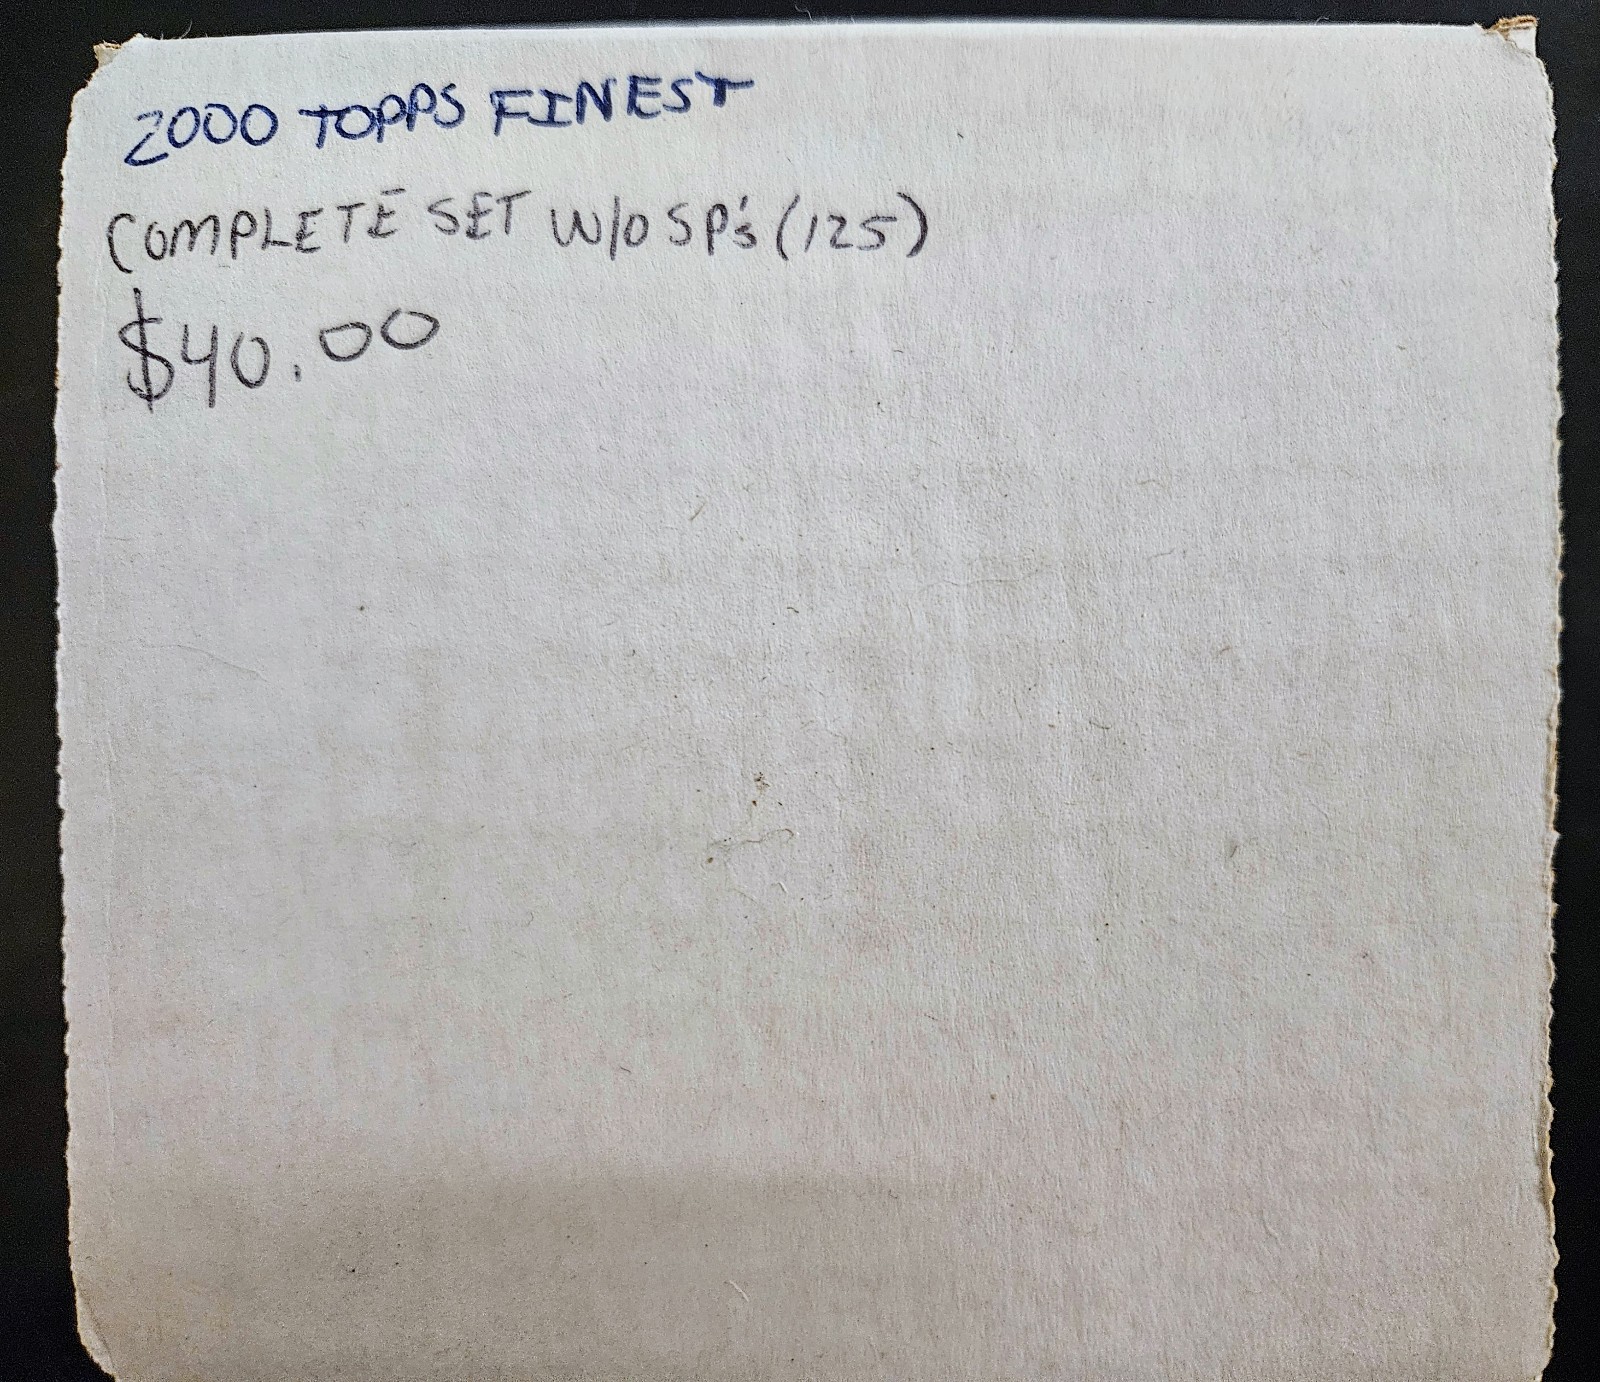 2000 TOPPS FINEST
COMPLETE SET W/O SP's (125)
$40.00